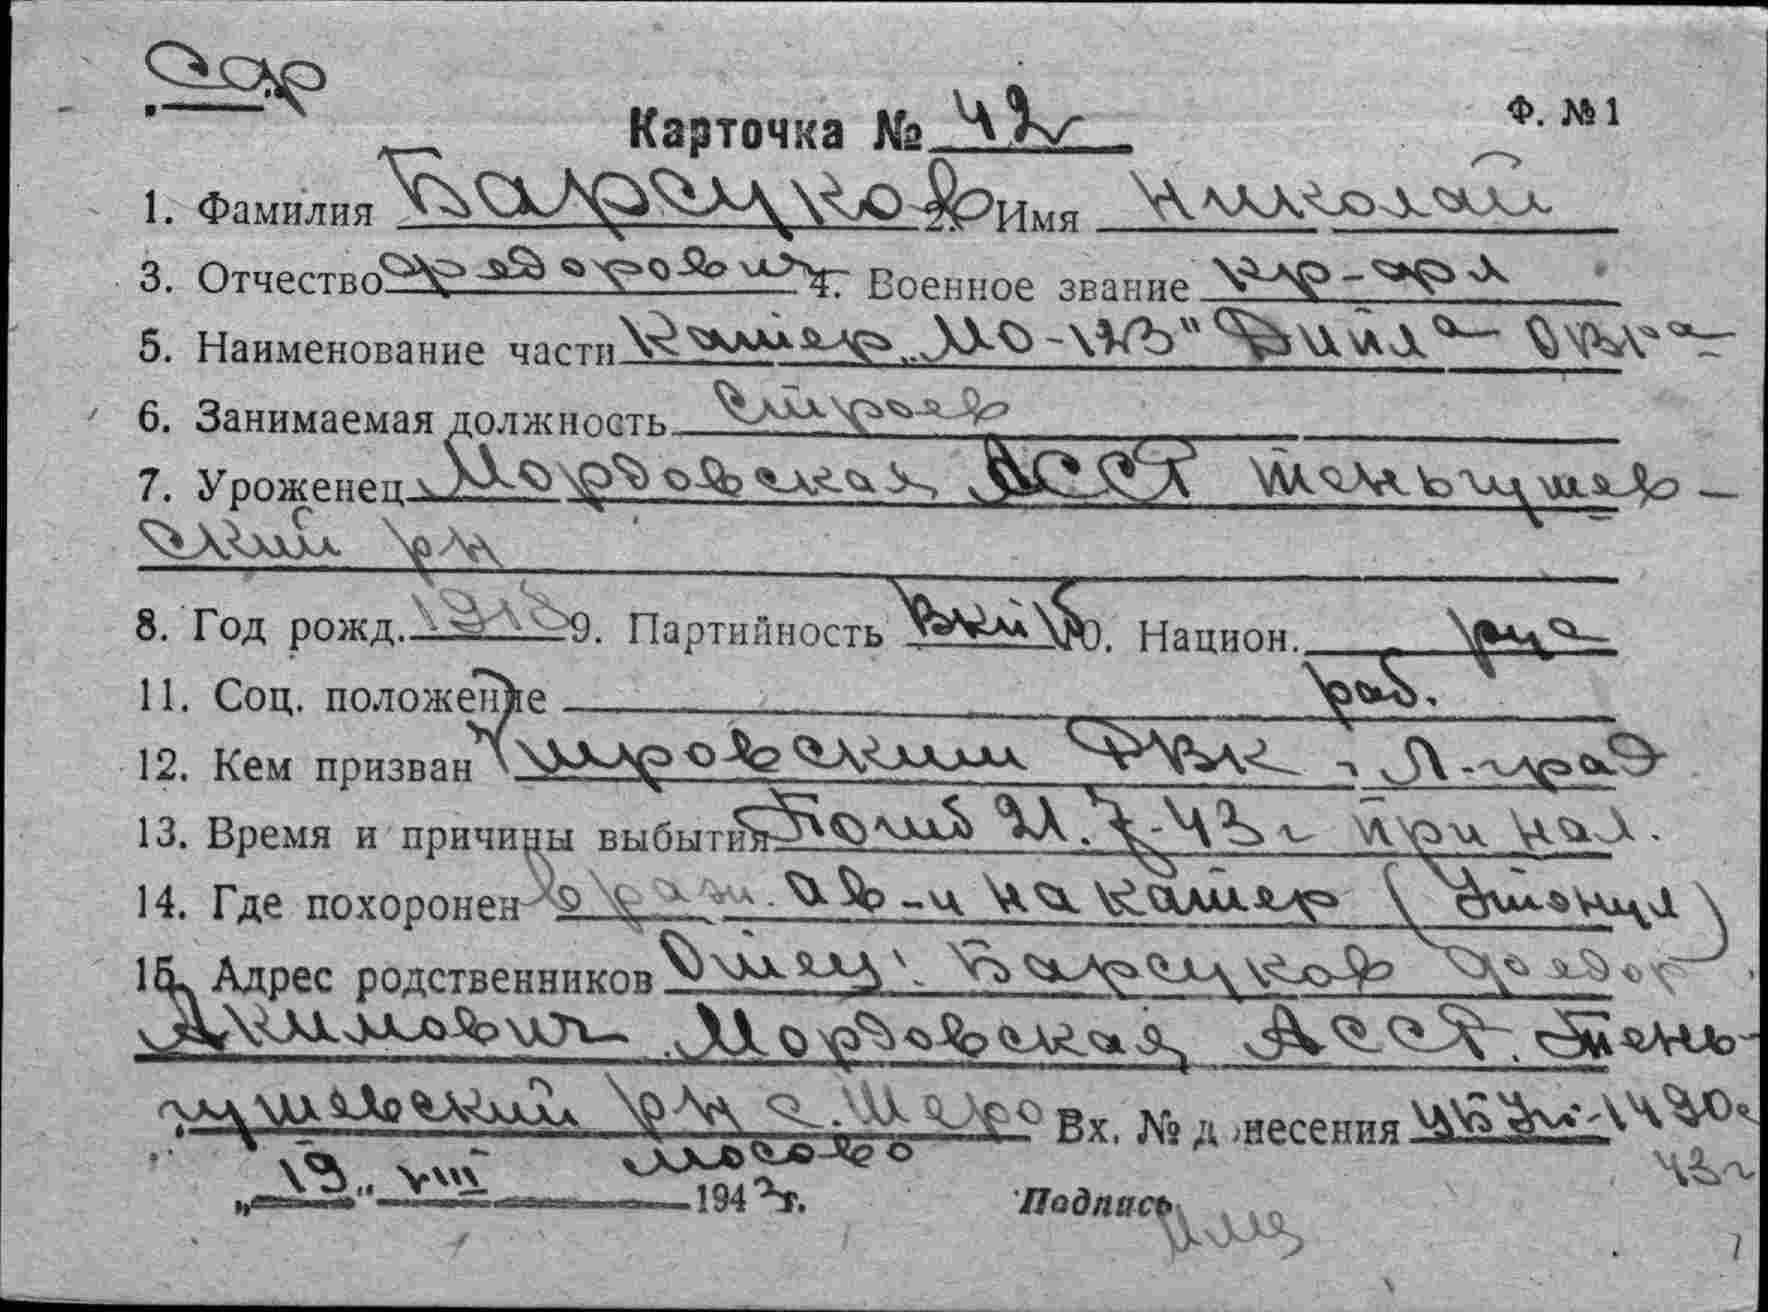 Карточка № 42 Ф. № 1
1. Фамилия Барсуков 2. Имя Николай
3. Отчество Федорович 4. Военное звание
5. Наименование части Катер „МО-
6. Занимаемая должность Строев
7. Уроженец Мордовская АССР Теньгушев-
ский р-н
8. Год рожд. 9. Партийность ВКП/б 10. Национ.
11. Соц. положение раб.
12. Кем призван Кировским РВК г. Л-град
13. Время и причины выбытия Погиб 21.7-43 г при нап.
14. Где похоронен вражеск. ав-и на катер (Утонул)
15. Адрес родственников Отец: Барсуков Федор
Акимович Мордовская АССР. Тень-
гушевский р-н с. Шер Вх. № д несения
19 VIII 1943 г. мосово 43г
Подпись